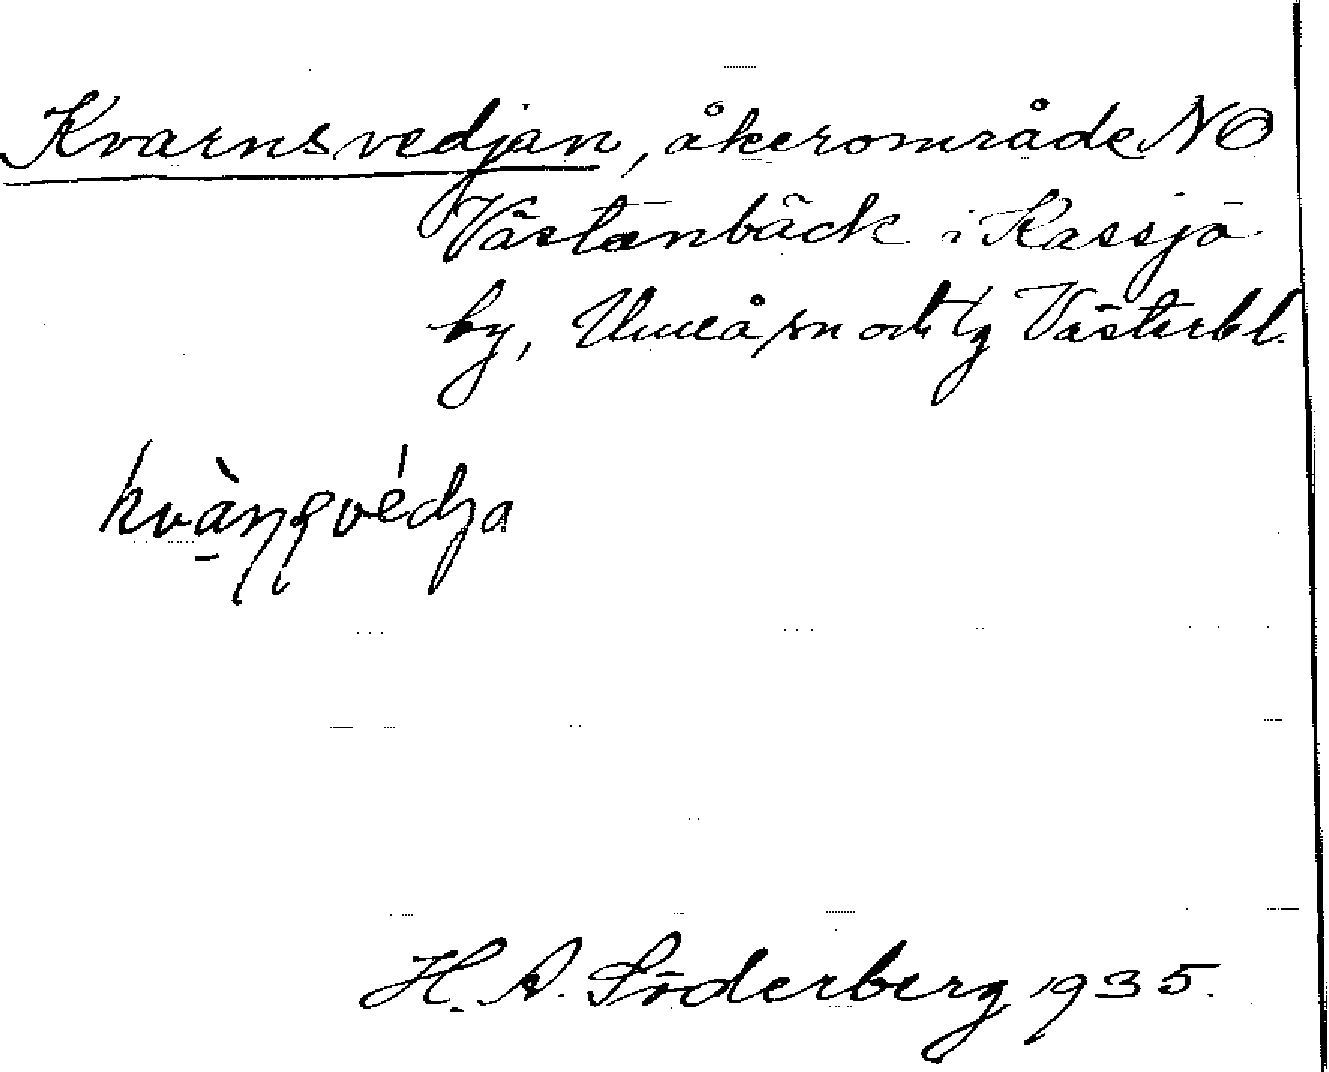 Kvarnsvedjan, åkerområde NO
Västanbäck i Kassjö
by, Umeå sn och tg Västerbl.
H. A. Söderberg 1935.